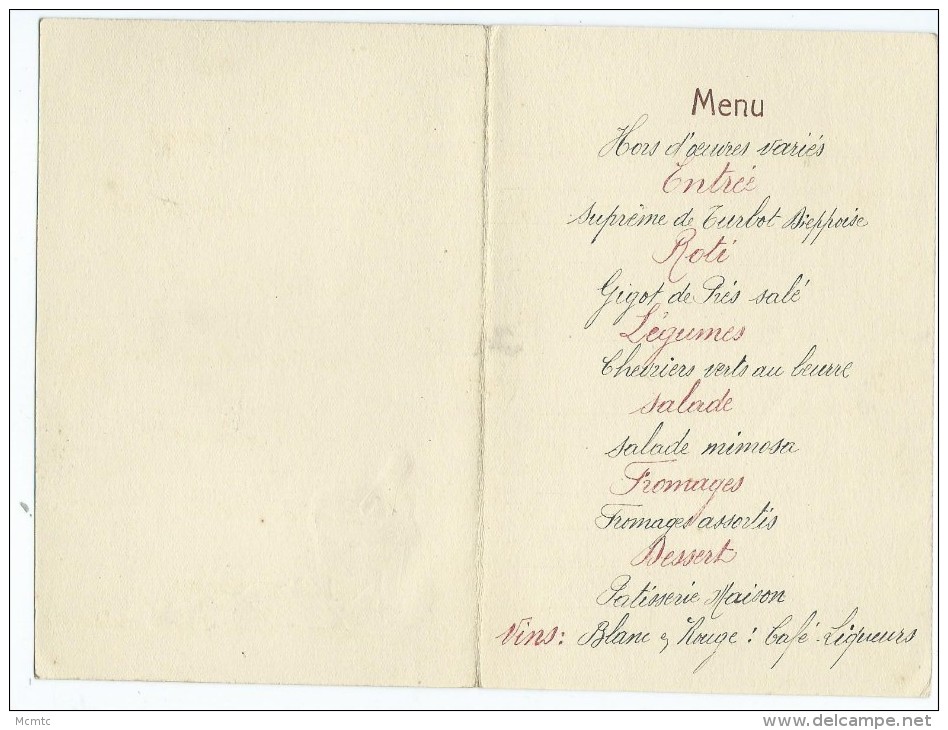 Menu
Hors d'œuvres variés
Entrée
Suprême de Turbot Dieppoise
Roti
Gigot de Prés salé
Légumes
Chevriers verts au beurre
Salade
Salade mimosa
Fromages
Fromages assortis
Dessert
Patisserie Maison
Vins: Blanc & Rouge : Café - Liqueurs
Mcmtc
www.delcampe.net